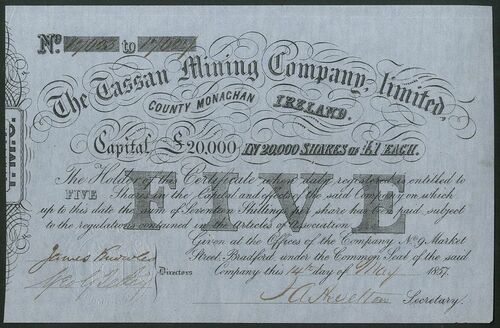 No. to
The Tassan Mining Company, limited,
COUNTY MONAGHAN IRELAND.
Capital £20,000 IN 20,000 SHARES OF £1 EACH.
The Holder of the Certificate when duly registered is entitled to
FIVE Shares in the Capital and effects of the said Company on which
up to this date the sum of Seventeen Shillings per share has been paid subject
to the regulations contained in the articles of association
FIVE
Given at the Offices of the Company No. 9 Market
Street, Bradford under the Common Seal of the said
Company this 14th day of May 1857.
James Knowles
Directors
Secretary.